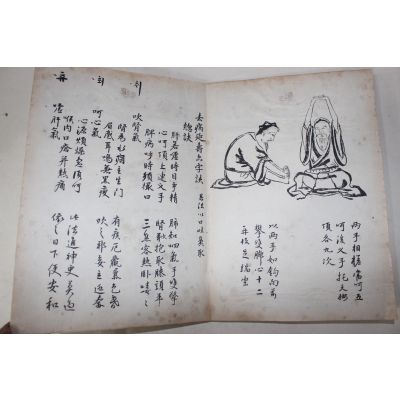 兩手相搓當呵五
呵後叉手托天按
頂各九次
以兩手如鈎向前
攀雙脚心十二
再收足端坐
去病延壽六字訣 其法以口吐鼻取
總訣
肝若噓時目爭精 肺知呬氣手雙擎
心呵頂上連叉手 腎吹抱取膝頭平
脾病呼時須撮口 三焦客熱臥嘻〻
吹腎氣
腎為水病主生門 有疾尫羸氣色昏
眉蹙耳鳴兼黑瘦 吹之邪妄立逃奔
呵心氣
心源煩燥急須呵 此法通神更莫過
喉內口瘡并熱痛 依之日下便安和
噓肝氣